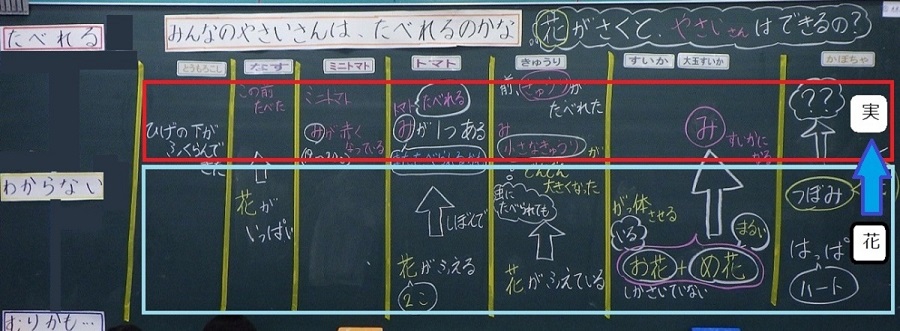 たべれる
みんなのやさいさんは、たべれるのかな
花がさくと、やさいさんはできるの?
とうもろこし
なす
ミニトマト
トマト
きゅうり
すいか
大玉すいか
かぼちゃ
ひげの下が
ふくらんで
きた
この前
たべた
花が
いっぱい
ミニトマト
みが赤く
なっている
トマト たべれる
みが1つある
しぼんで
花がふえる
2こ
前、きゅうりが
たべれた
み
小さなきゅうりが
どんどん
大きくなった
虫に
たべられても
花がふえている
み
すいかになる
がっ体させる
いる
まるい
お花+め花
しかさいていない
??
つぼみ
はっぱ
ハート
実
花
わからない
むりかも…